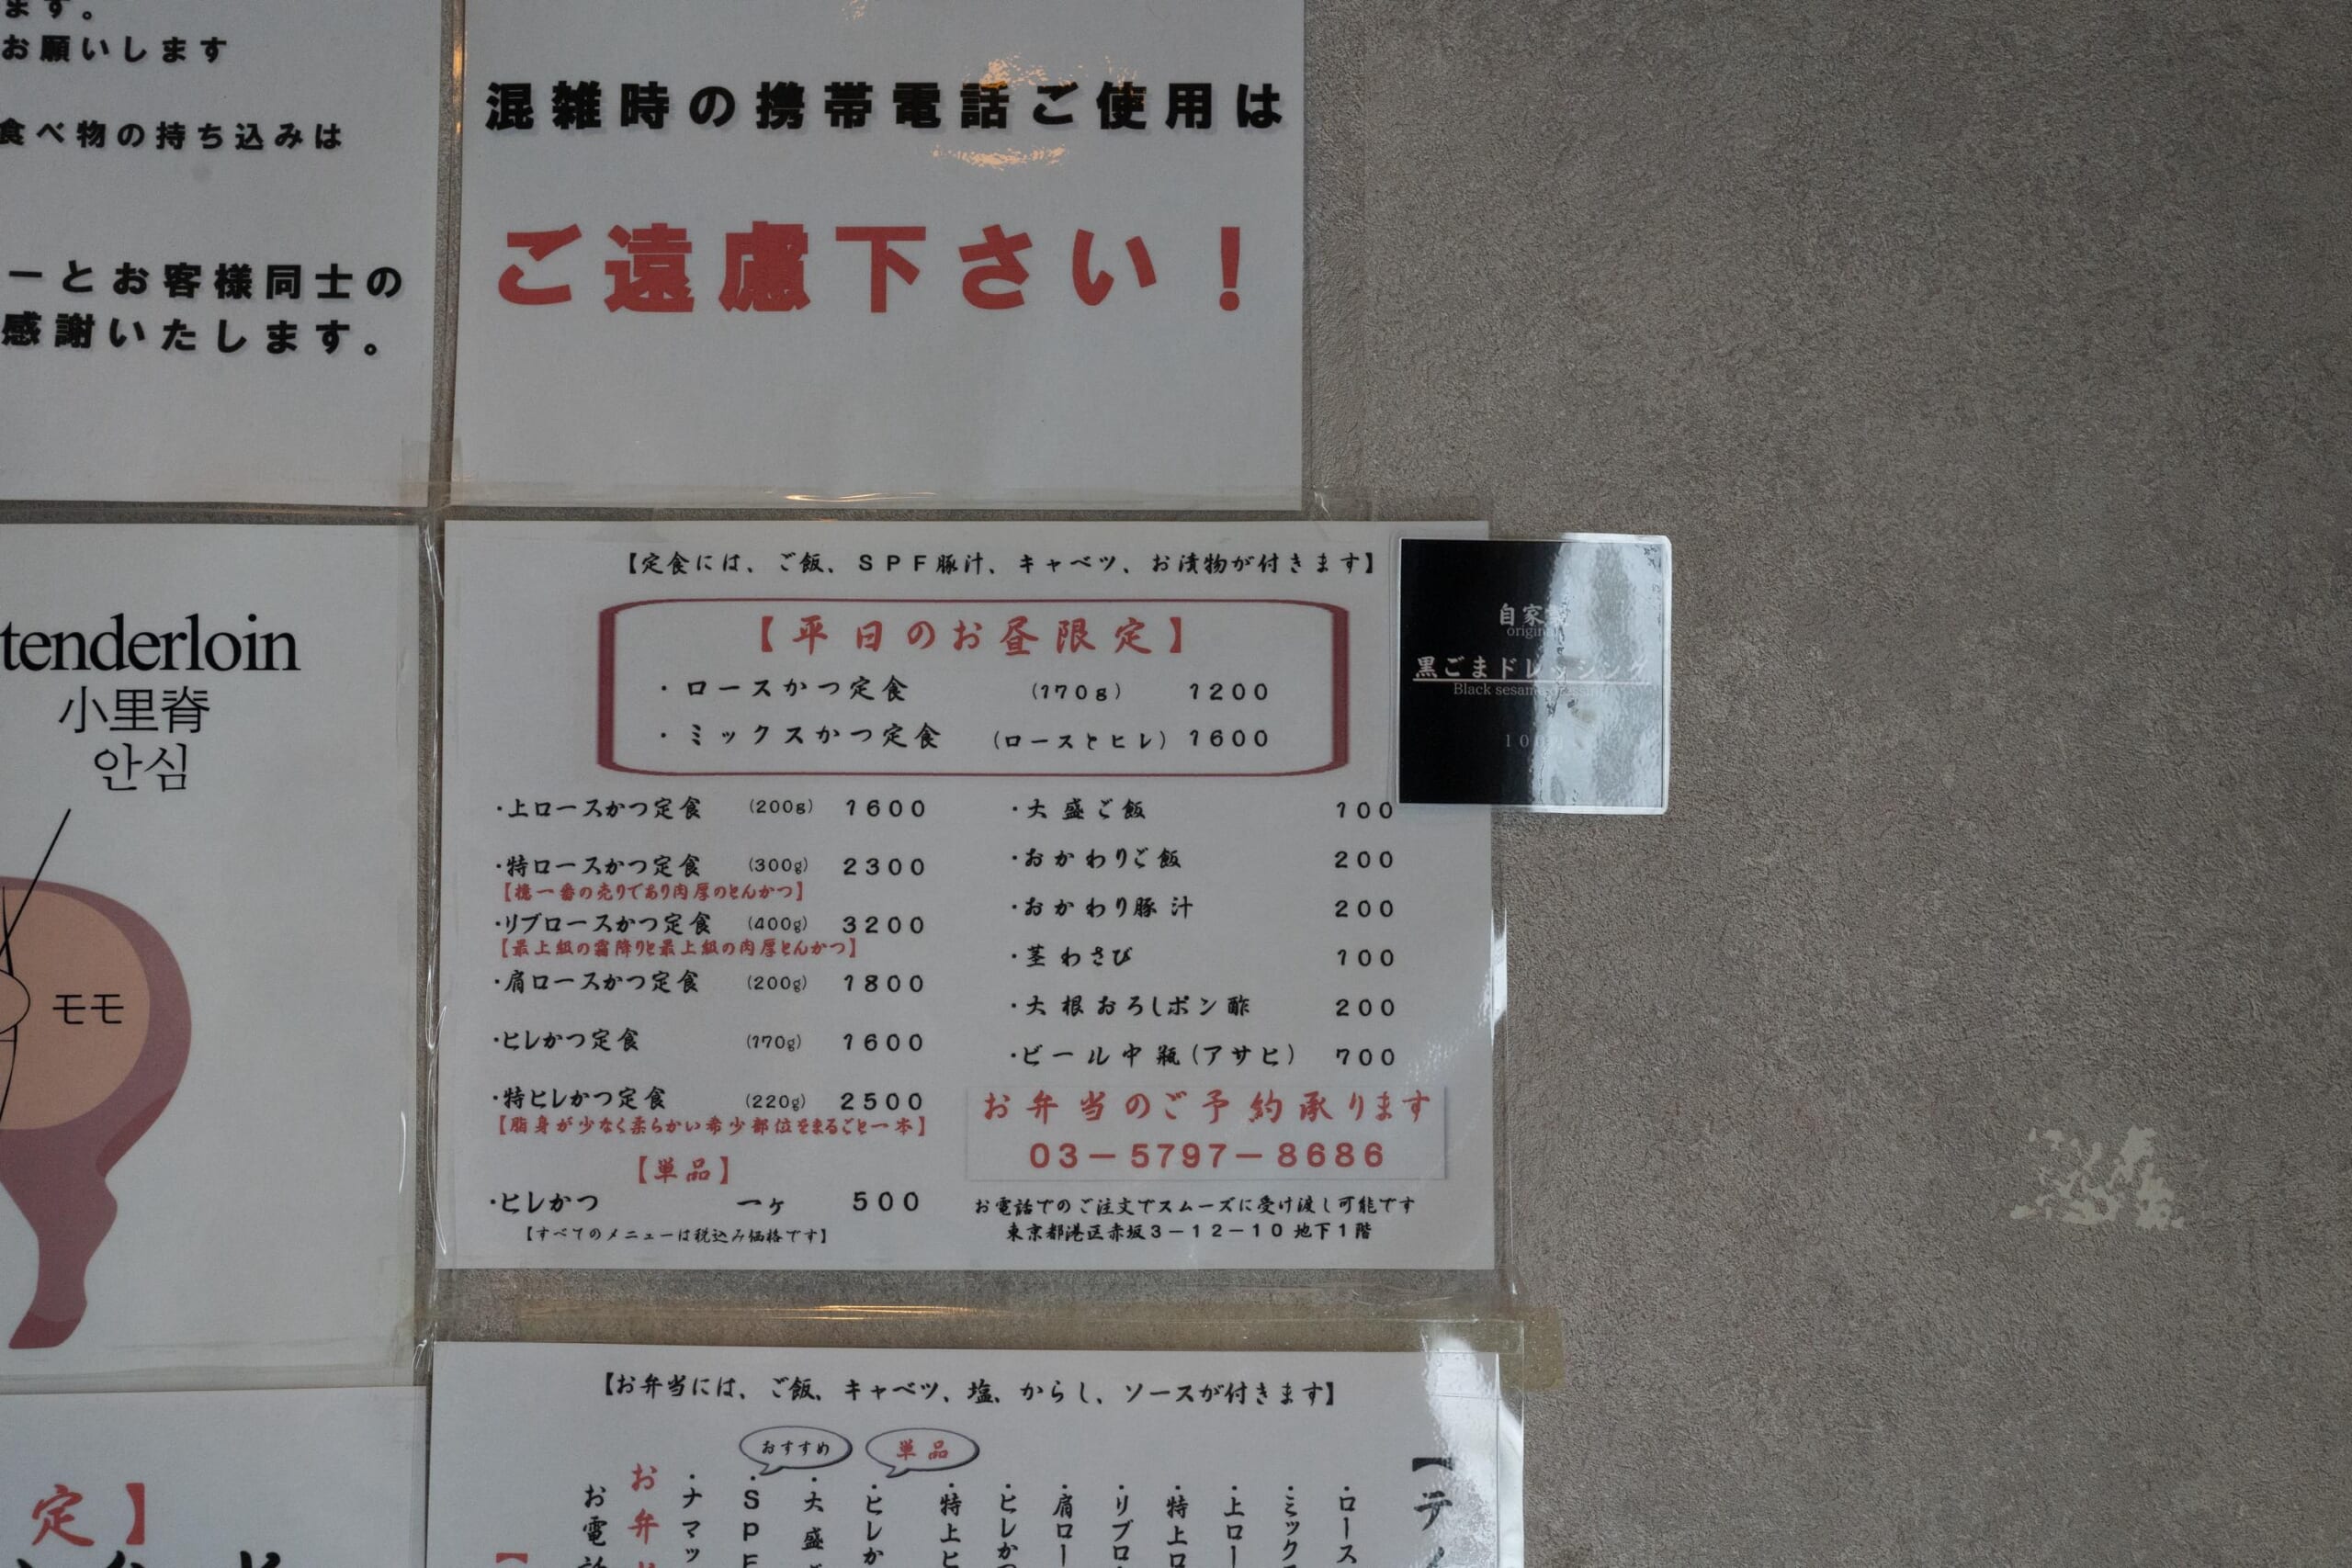 ます。
お願いします
食べ物の持ち込みは
ーとお客様同士の
感謝いたします。
混雑時の携帯電話ご使用は
ご遠慮下さい！
tenderloin
小里脊
안심
モモ
【定食には、ご飯、ＳＰＦ豚汁、キャベツ、お漬物が付きます】
【平日のお昼限定】
・ロースかつ定食 (170g) 1200
・ミックスかつ定食 (ロースとヒレ) 1600
・上ロースかつ定食 (200g) 1600
・特ロースかつ定食 (300g) 2300
一番の売りであり肉厚のとんかつ】
・リブロースかつ定食 (400g) 3200
【最上級の霜降りと最上級の肉厚とんかつ】
・肩ロースかつ定食 (200g) 1800
・ヒレかつ定食 (170g) 1600
・特ヒレかつ定食 (220g) 2500
【脂身が少なく柔らかい希少部位をまるごと一本】
【単品】
・ヒレかつ 一ヶ 500
【すべてのメニューは税込み価格です】
・大盛ご飯 100
・おかわりご飯 200
・おかわり豚汁 200
・茎わさび 100
・大根おろしポン酢 200
・ビール中瓶(アサヒ) 700
お弁当のご予約承ります
03－5797－8686
お電話でのご注文でスムーズに受け渡し可能です
東京都港区赤坂３－１２－１０ 地下１階
自家
original
黒ごまドレッシング
Black sesame
【お弁当には、ご飯、キャベツ、塩、からし、ソースが付きます】
おすすめ
単品
【テイ
・ロース
・ミックス
・上ロー
・特上ロ
・リブロ
・肩ロー
・ヒレか
・特上ヒ
・ヒレか
・大盛
・ＳＰＦ
・ナマッ
お弁
お電話
定】